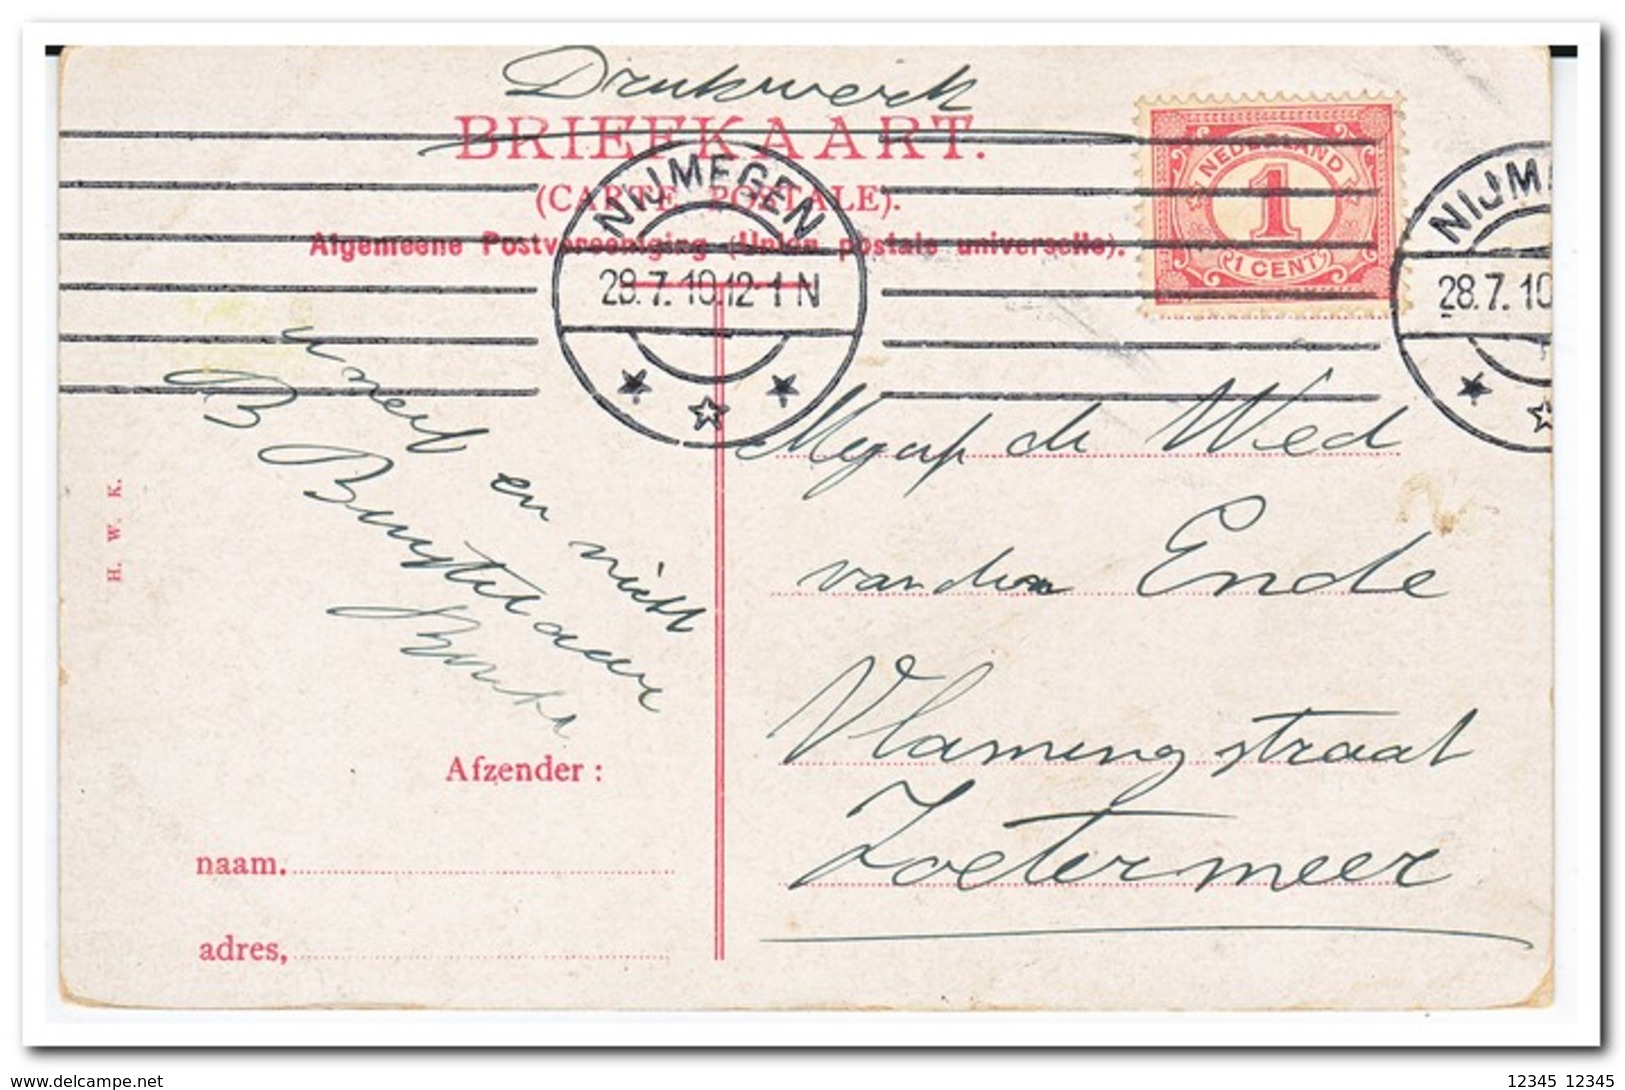 Drukwerk
BRIEFKAART.
(CARTE POSTALE).
Algemeene Postvereeniging (Union postale universelle).
NEDERLAND
1
1 CENT
NIJMEGEN
28.7.10.12-1 N
NIJM
28.7.10
en niet
de Wed
van den Ende
Vlamingstraat
Zoetermeer
H. W. K.
Afzender:
naam.
adres,
12345 12345